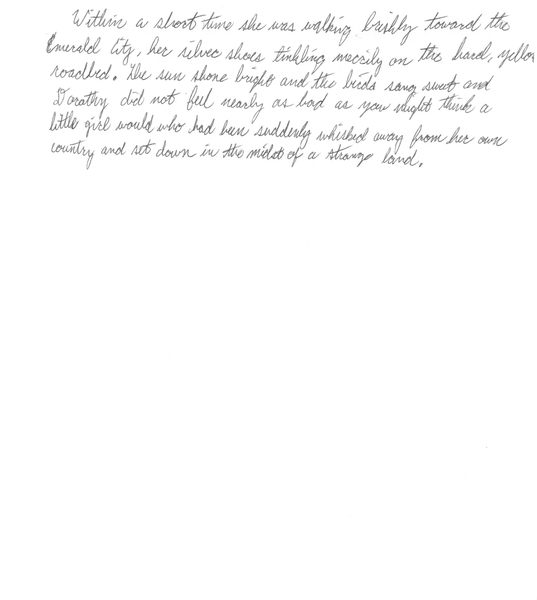 Within a short time she was walking briskly toward the
Emerald City, her silver shoes tinkling merrily on the hard, yellow
roadbed. The sun shone bright and the birds sang sweet and
Dorothy did not feel nearly as bad as you might think a
little girl would who had been suddenly whisked away from her own
country and set down in the midst of a strange land.